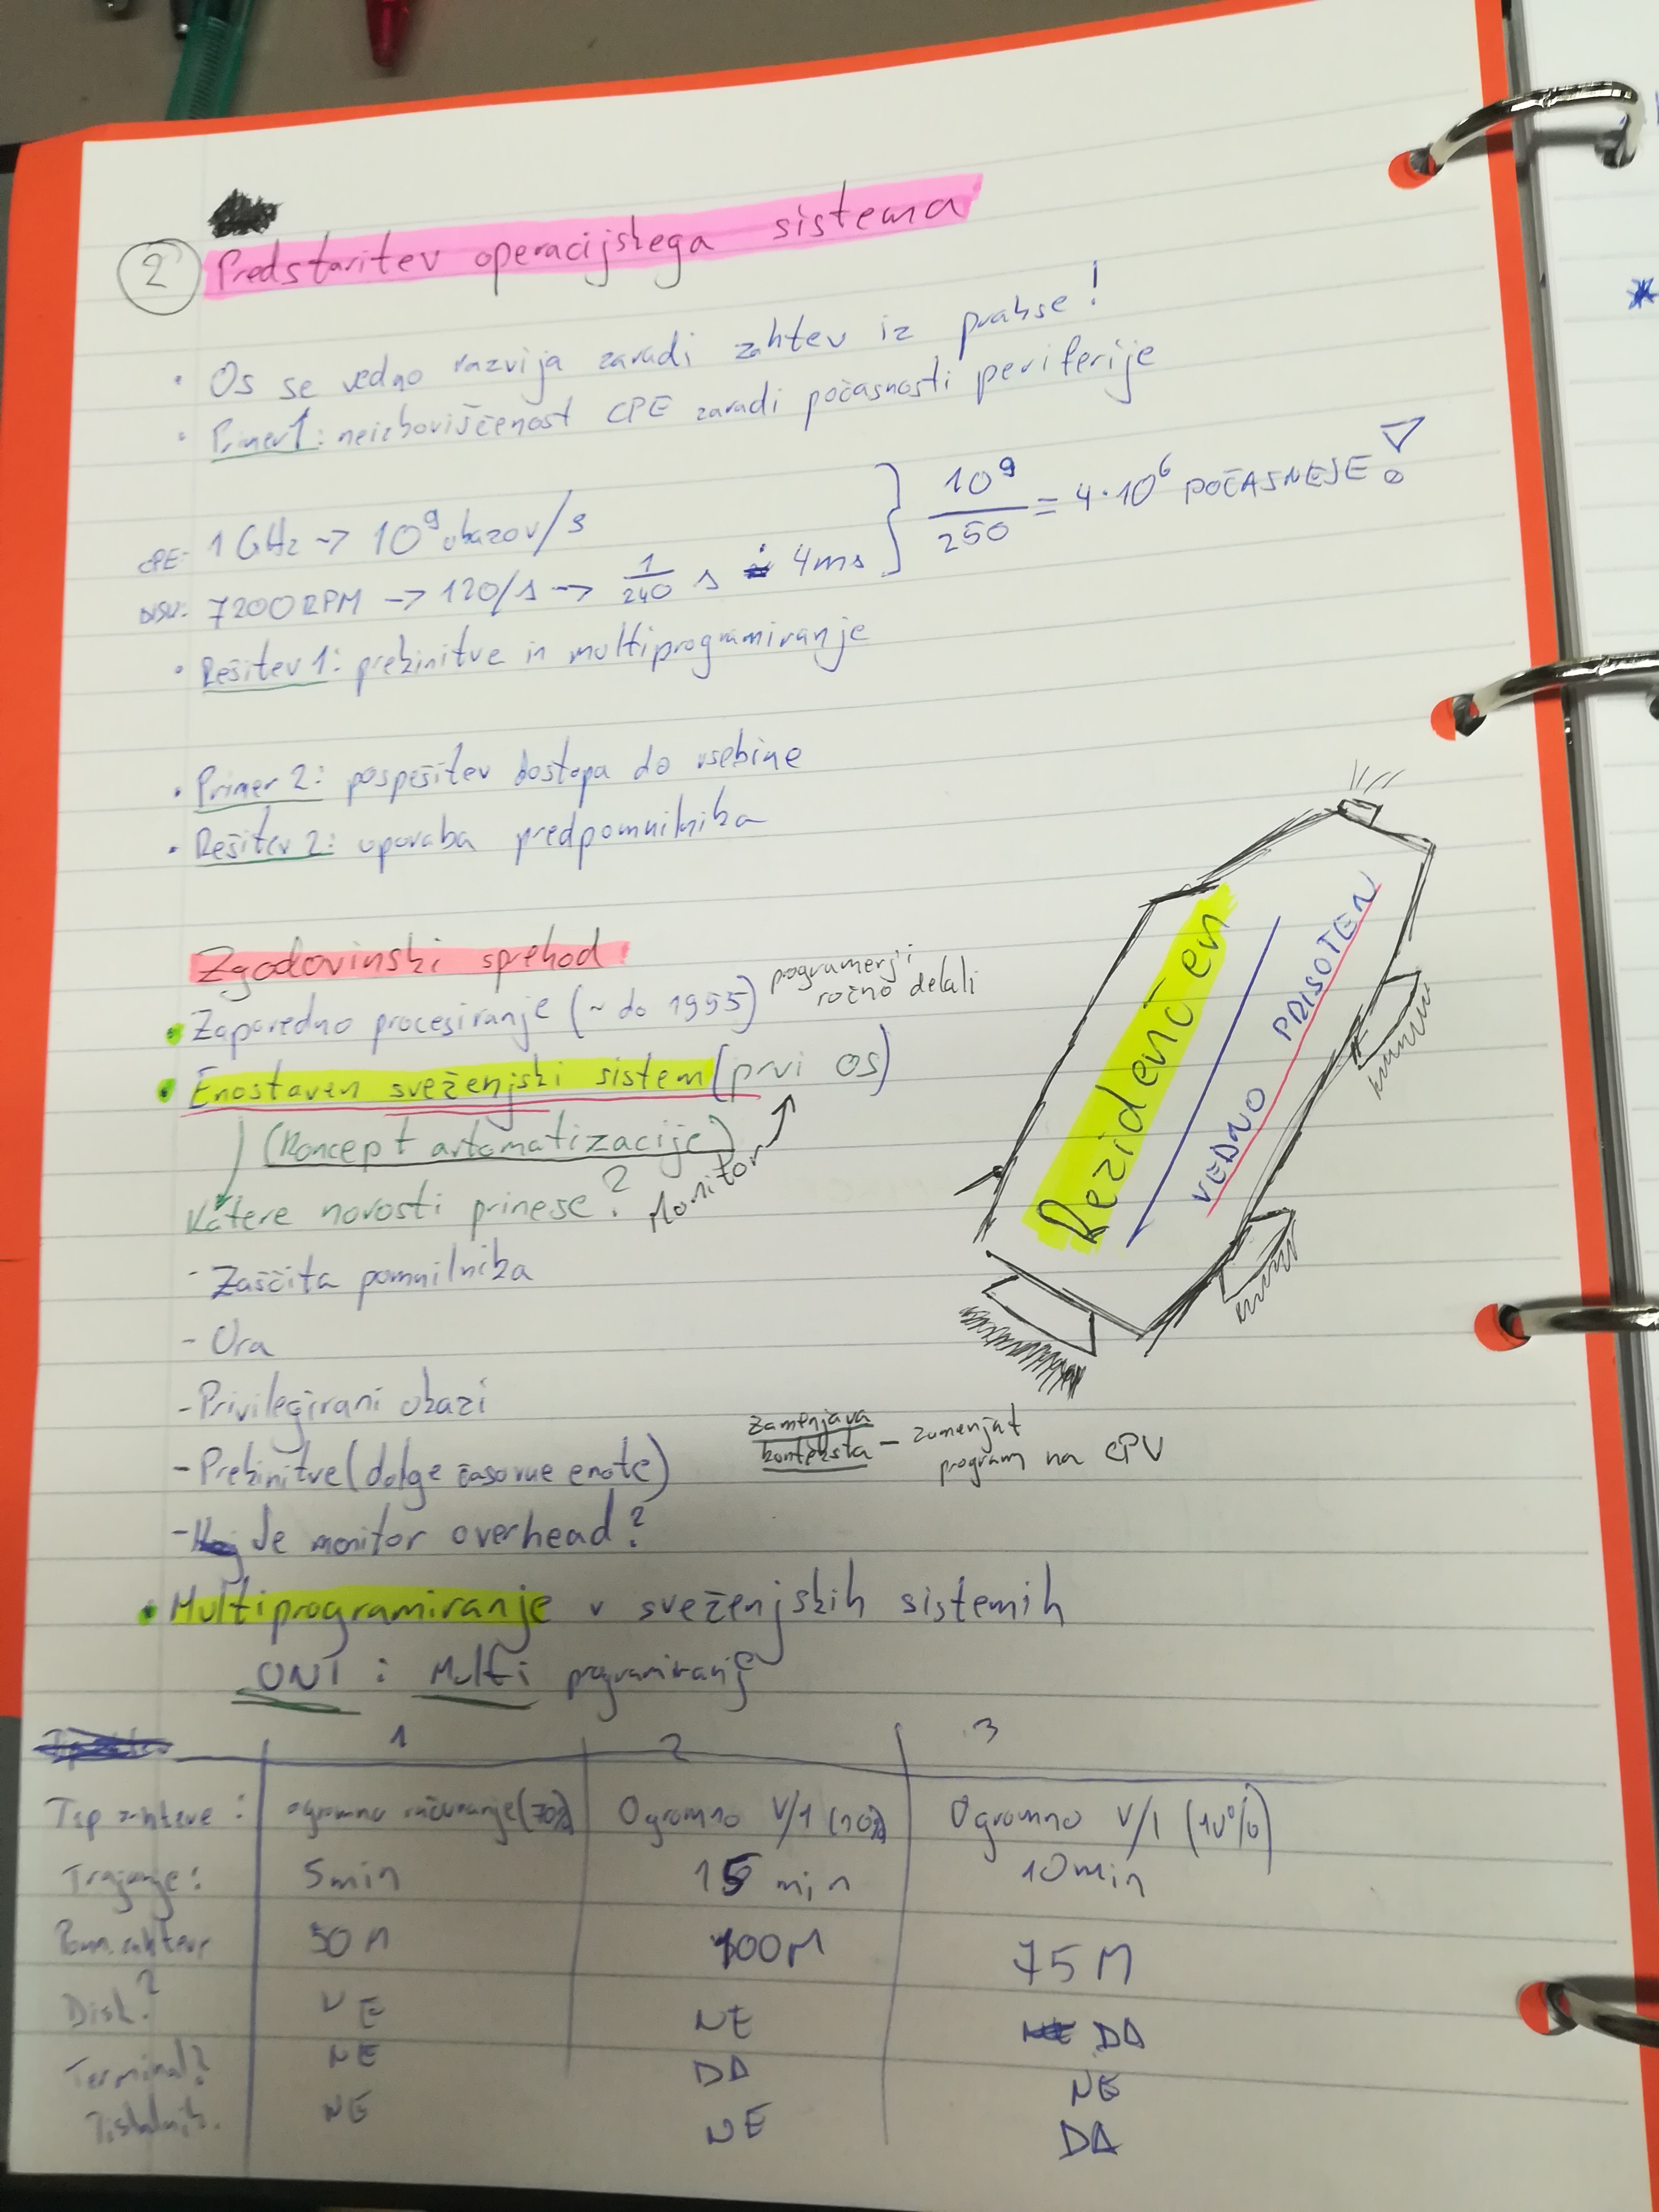 2 Predstavitev operacijskega sistema
• Os se vedno razvija zaradi zahtev iz prakse!
• Primer 1: neizkoriščenost CPE zaradi počasnosti periferije
CPE: 1 GHz → 10⁹ ukazov/s } 10⁹/250 = 4·10⁶ POČASNEJE!
DISK: 7200 RPM → 120/s → 1/240 s 4ms
• Rešitev 1: prekinitve in multiprogramiranje
• Primer 2: pospešitev dostopa do vsebine
• Rešitev 2: uporaba predpomnilnika
Zgodovinski sprehod
• Zaporedno procesiranje (~ do 1955) programerji
ročno delali
• Enostaven sveženjski sistem (prvi OS)
(Koncept avtomatizacije)
Monitor
Katere novosti prinese?
Rezidenčen
VEDNO PRISOTEN
- Zaščita pomnilnika
- Ura
- Privilegirani ukazi
- Prekinitve (dolge časovne enote)
Zamenjava
konteksta - zamenjat
program na CPU
- Je monitor overhead?
• Multiprogramiranje v sveženjskih sistemih
UNI : Multi programiranje
1 2 3
Tip zahteve: ogromno računanje (70%) Ogromno V/I (10%) Ogromno V/I (10%)
Trajanje: 5min 15 min 10min
Pom. zahteve 50 M 100M 75 M
Disk? NE NE DA
Terminal? NE DA NE
Tiskalnik. NE NE DA